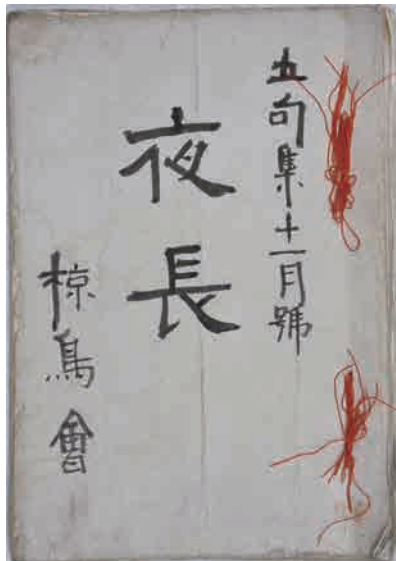 五句集十一月號
夜長
椋鳥會